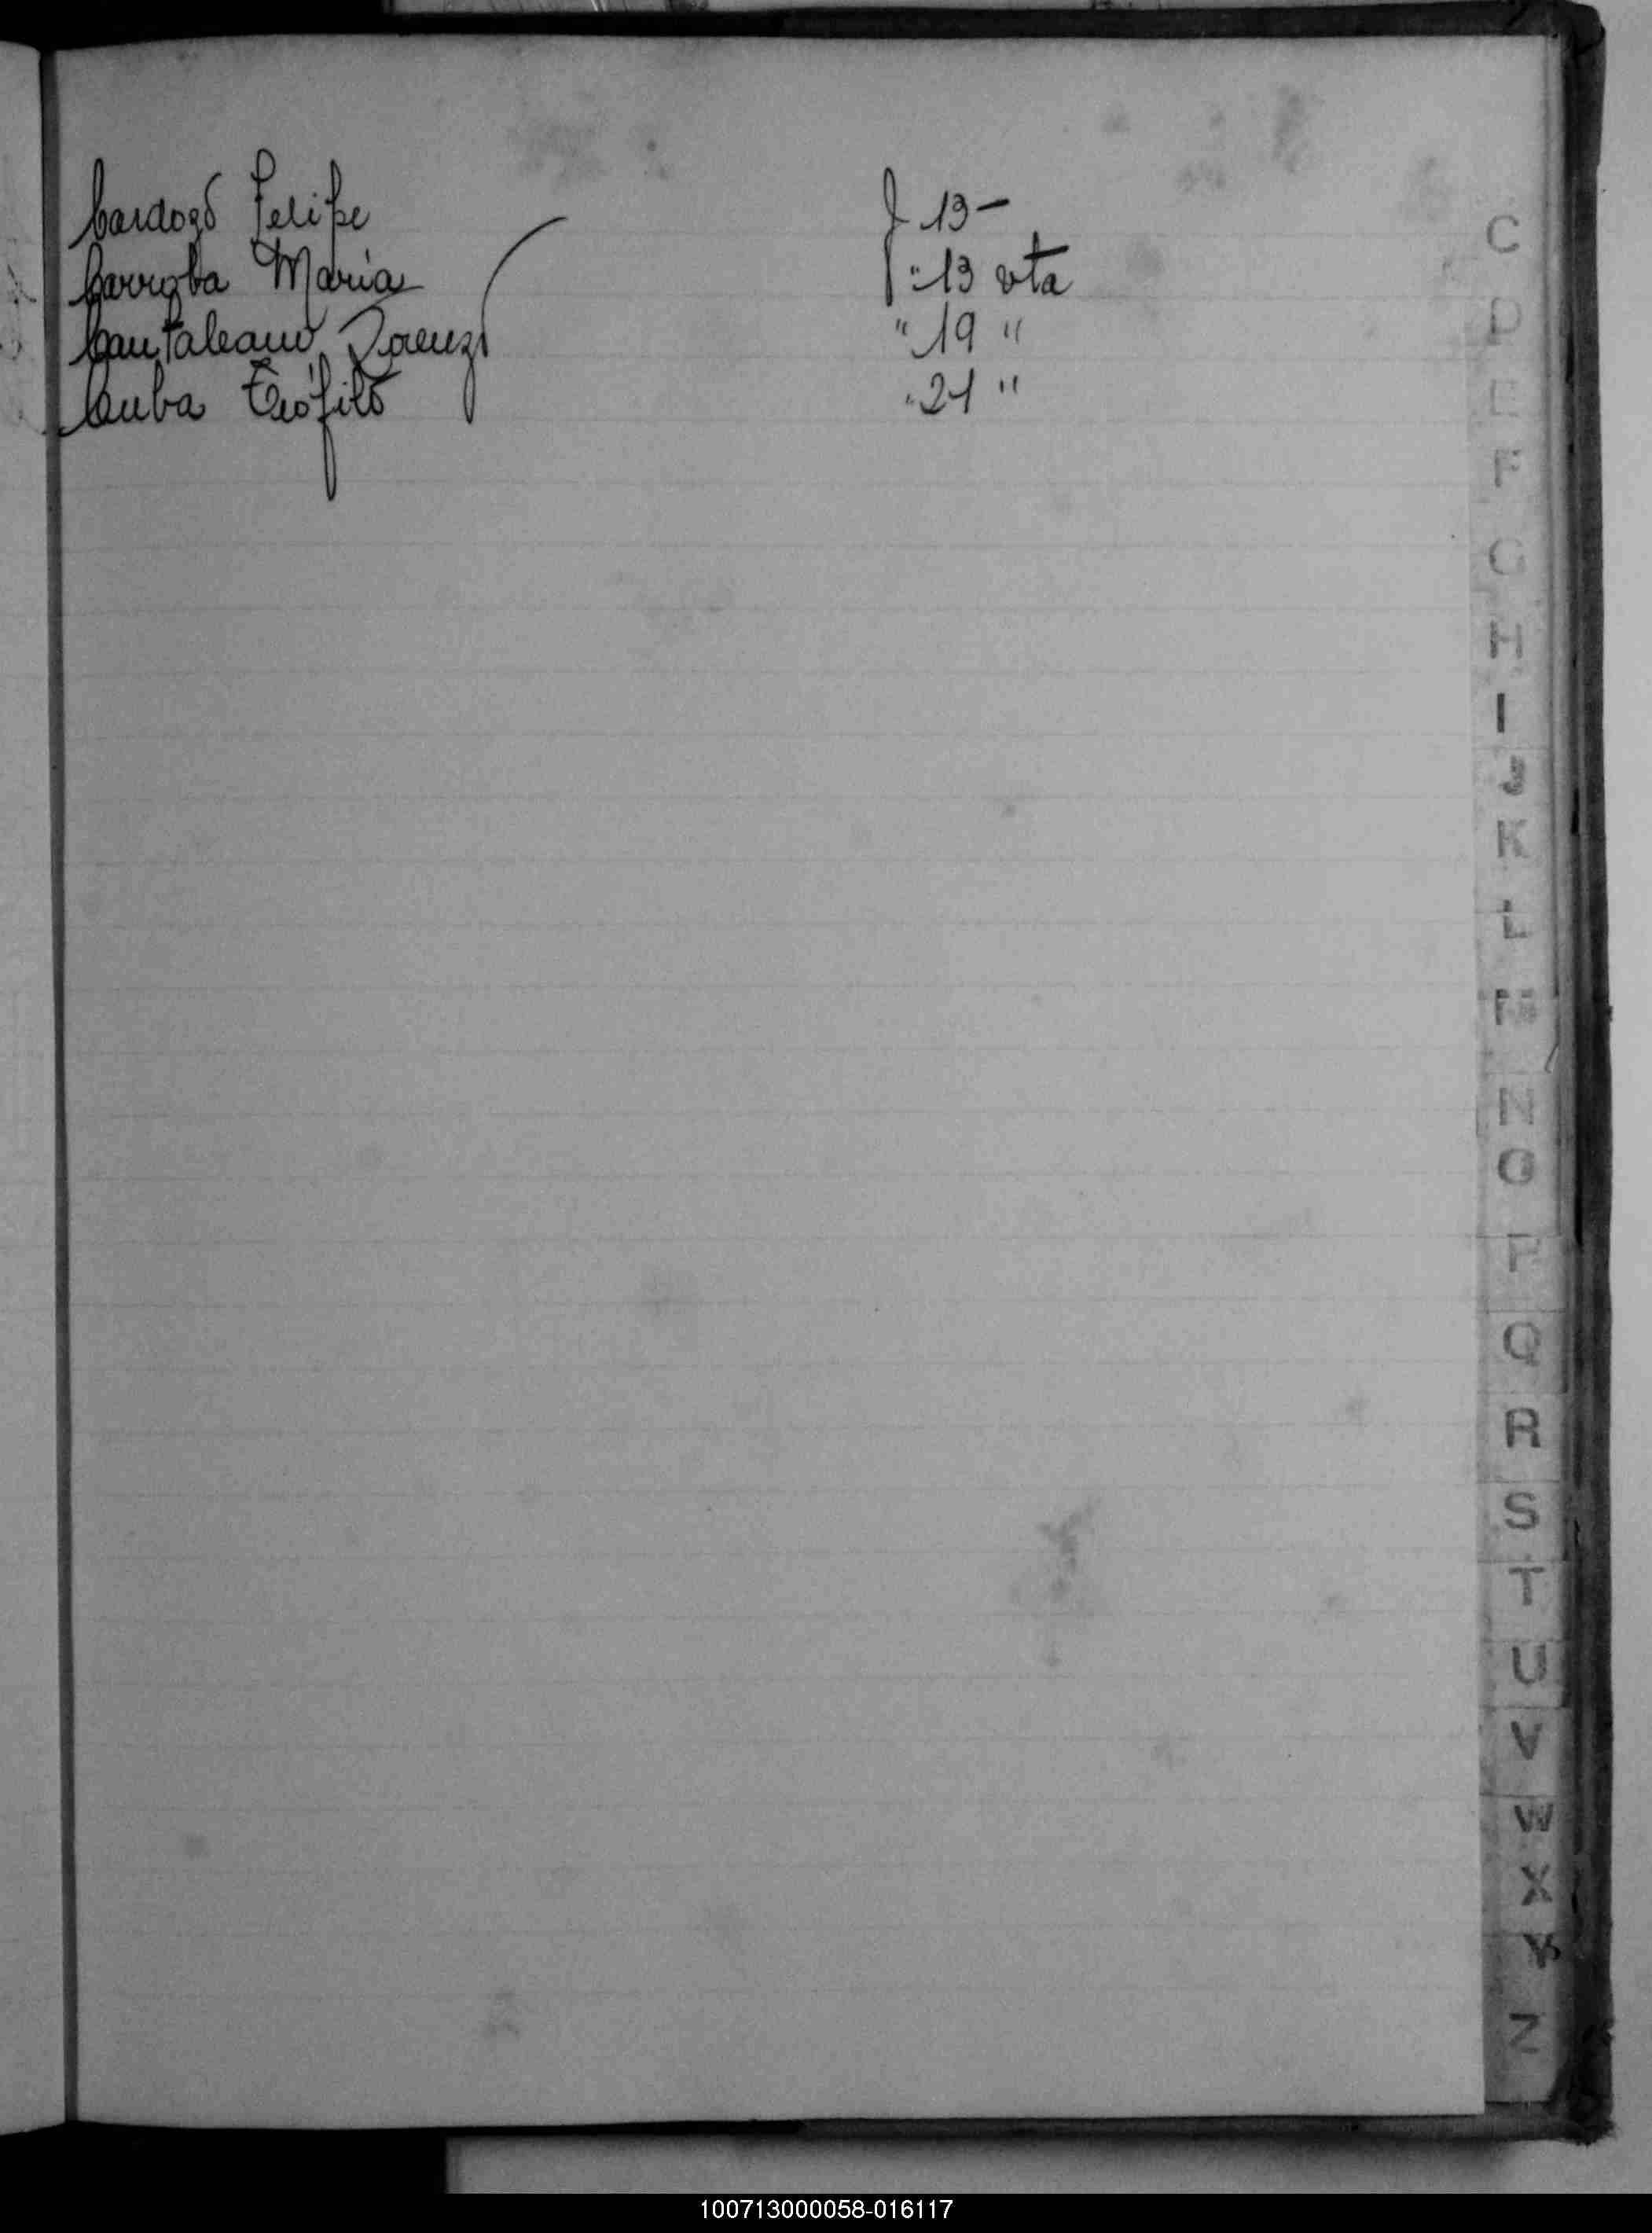 Cardozo Felipe f 13-
Carroba Maria " 13 vta
Cantaleano Lorenzo " 19 "
Cuba Teófilo " 21 "
C
D
E
F
G
H
I
J
K
L
M
N
O
P
Q
R
S
T
U
V
W
X
Y
Z
100713000058-016117